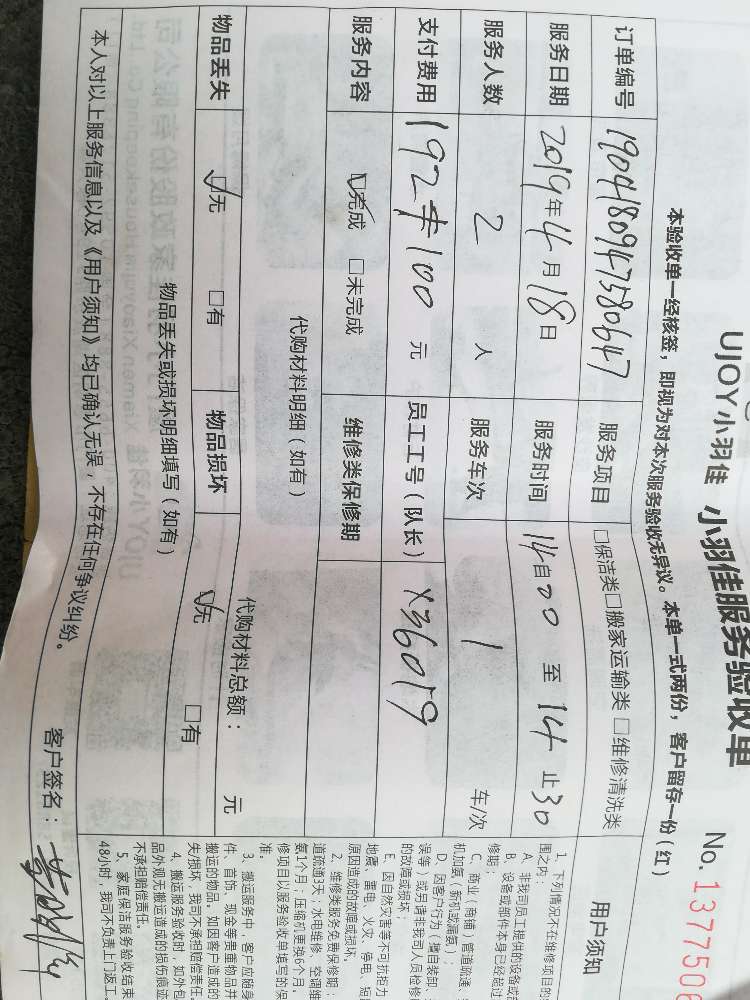 UJOY小羽佳 小羽佳服务验收单
No. 1377506
本验收单一经核签，即视为对本次服务验收无异议。本单一式两份，客户留存一份（红）
订单编号 1904180947580647 服务项目 □保洁类□搬家运输类 □维修清洗类
服务日期 2019年4月18日 服务时间 14自00 至 14止30
服务人数 2 人 服务车次 1 车/次
支付费用 192 100 元 员工工号（队长） X36019
服务内容 ☑完成 □未完成 维修类保修期
代购材料明细（如有） 代购材料总额： 元
物品丢失 ☑无 □有 物品损坏 ☑无 □有
物品丢失或损坏明细填写（如有）
本人对以上服务信息以及《用户须知》均已确认无误，不存在任何争议纠纷。 客户签名：
用户须知
1. 下列情况不在维修项目的
围之内：
A. 非我司员工提供的设备或
B. 设备或部件本身已经超过
修期；
C. 商业（商铺）管道疏通、
机加氨（新机或漏氨）；
D. 因客户行为（擅自装卸、
误等）或另请非我司人员检修
的故障或损坏；
E. 因自然灾害等不可抗拒力
地震、雷电、火灾、停电、短
原因造成的故障或损坏。
2. 维修类服务免费保修期：
道疏通3天；水电维修、空调维
氨1个月；压缩机更换6个月。
修项目以服务验收单填写的保
准。
3. 搬运服务中，客户应随身
件、首饰、现金等贵重物品并
搬运的物品。如因客户造成的
失/损坏，我司不承担赔偿责任
4. 搬运服务验收时，如外包
品外观无搬运造成的损伤痕迹
不承担赔偿责任。
5. 家庭保洁服务验收结束
48小时，我司不负责上门返工。